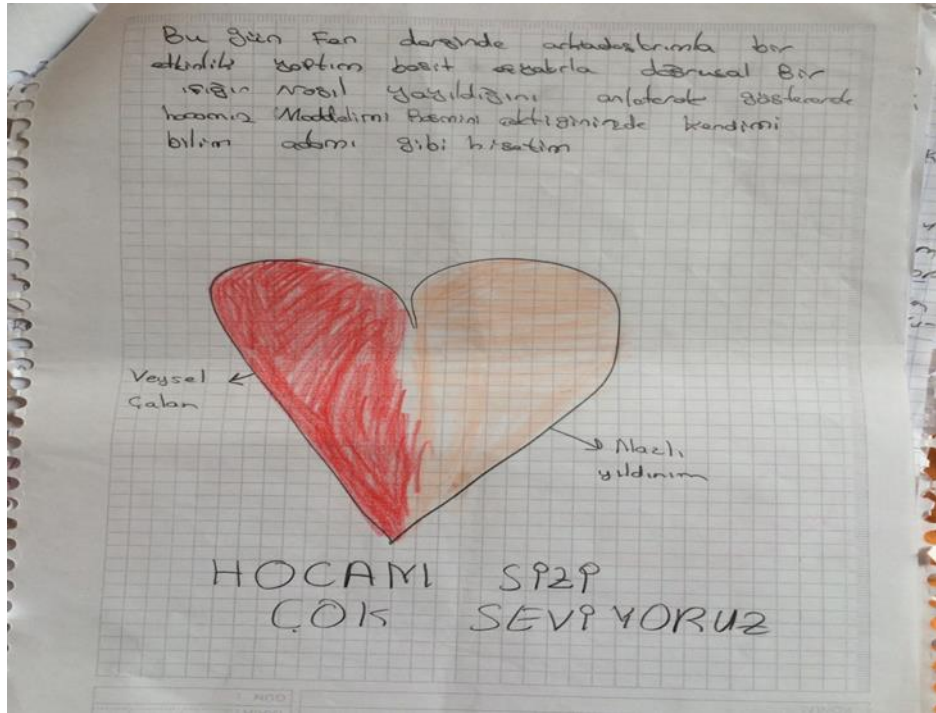 Bu gün Fen dersinde arkadaşlarımla bir
etkinlik yaptım basit eşyalarla doğrusal Bir
ışığın Nasıl yayıldığını anlatarak göstererek
hocamız Modelimi Resmini çektiğinizde kendimi
bilim adamı gibi hisetim
Veysel
Çalan
Nazlı
yıldırım
HOCAM SİZİ
ÇOK SEVİYORUZ